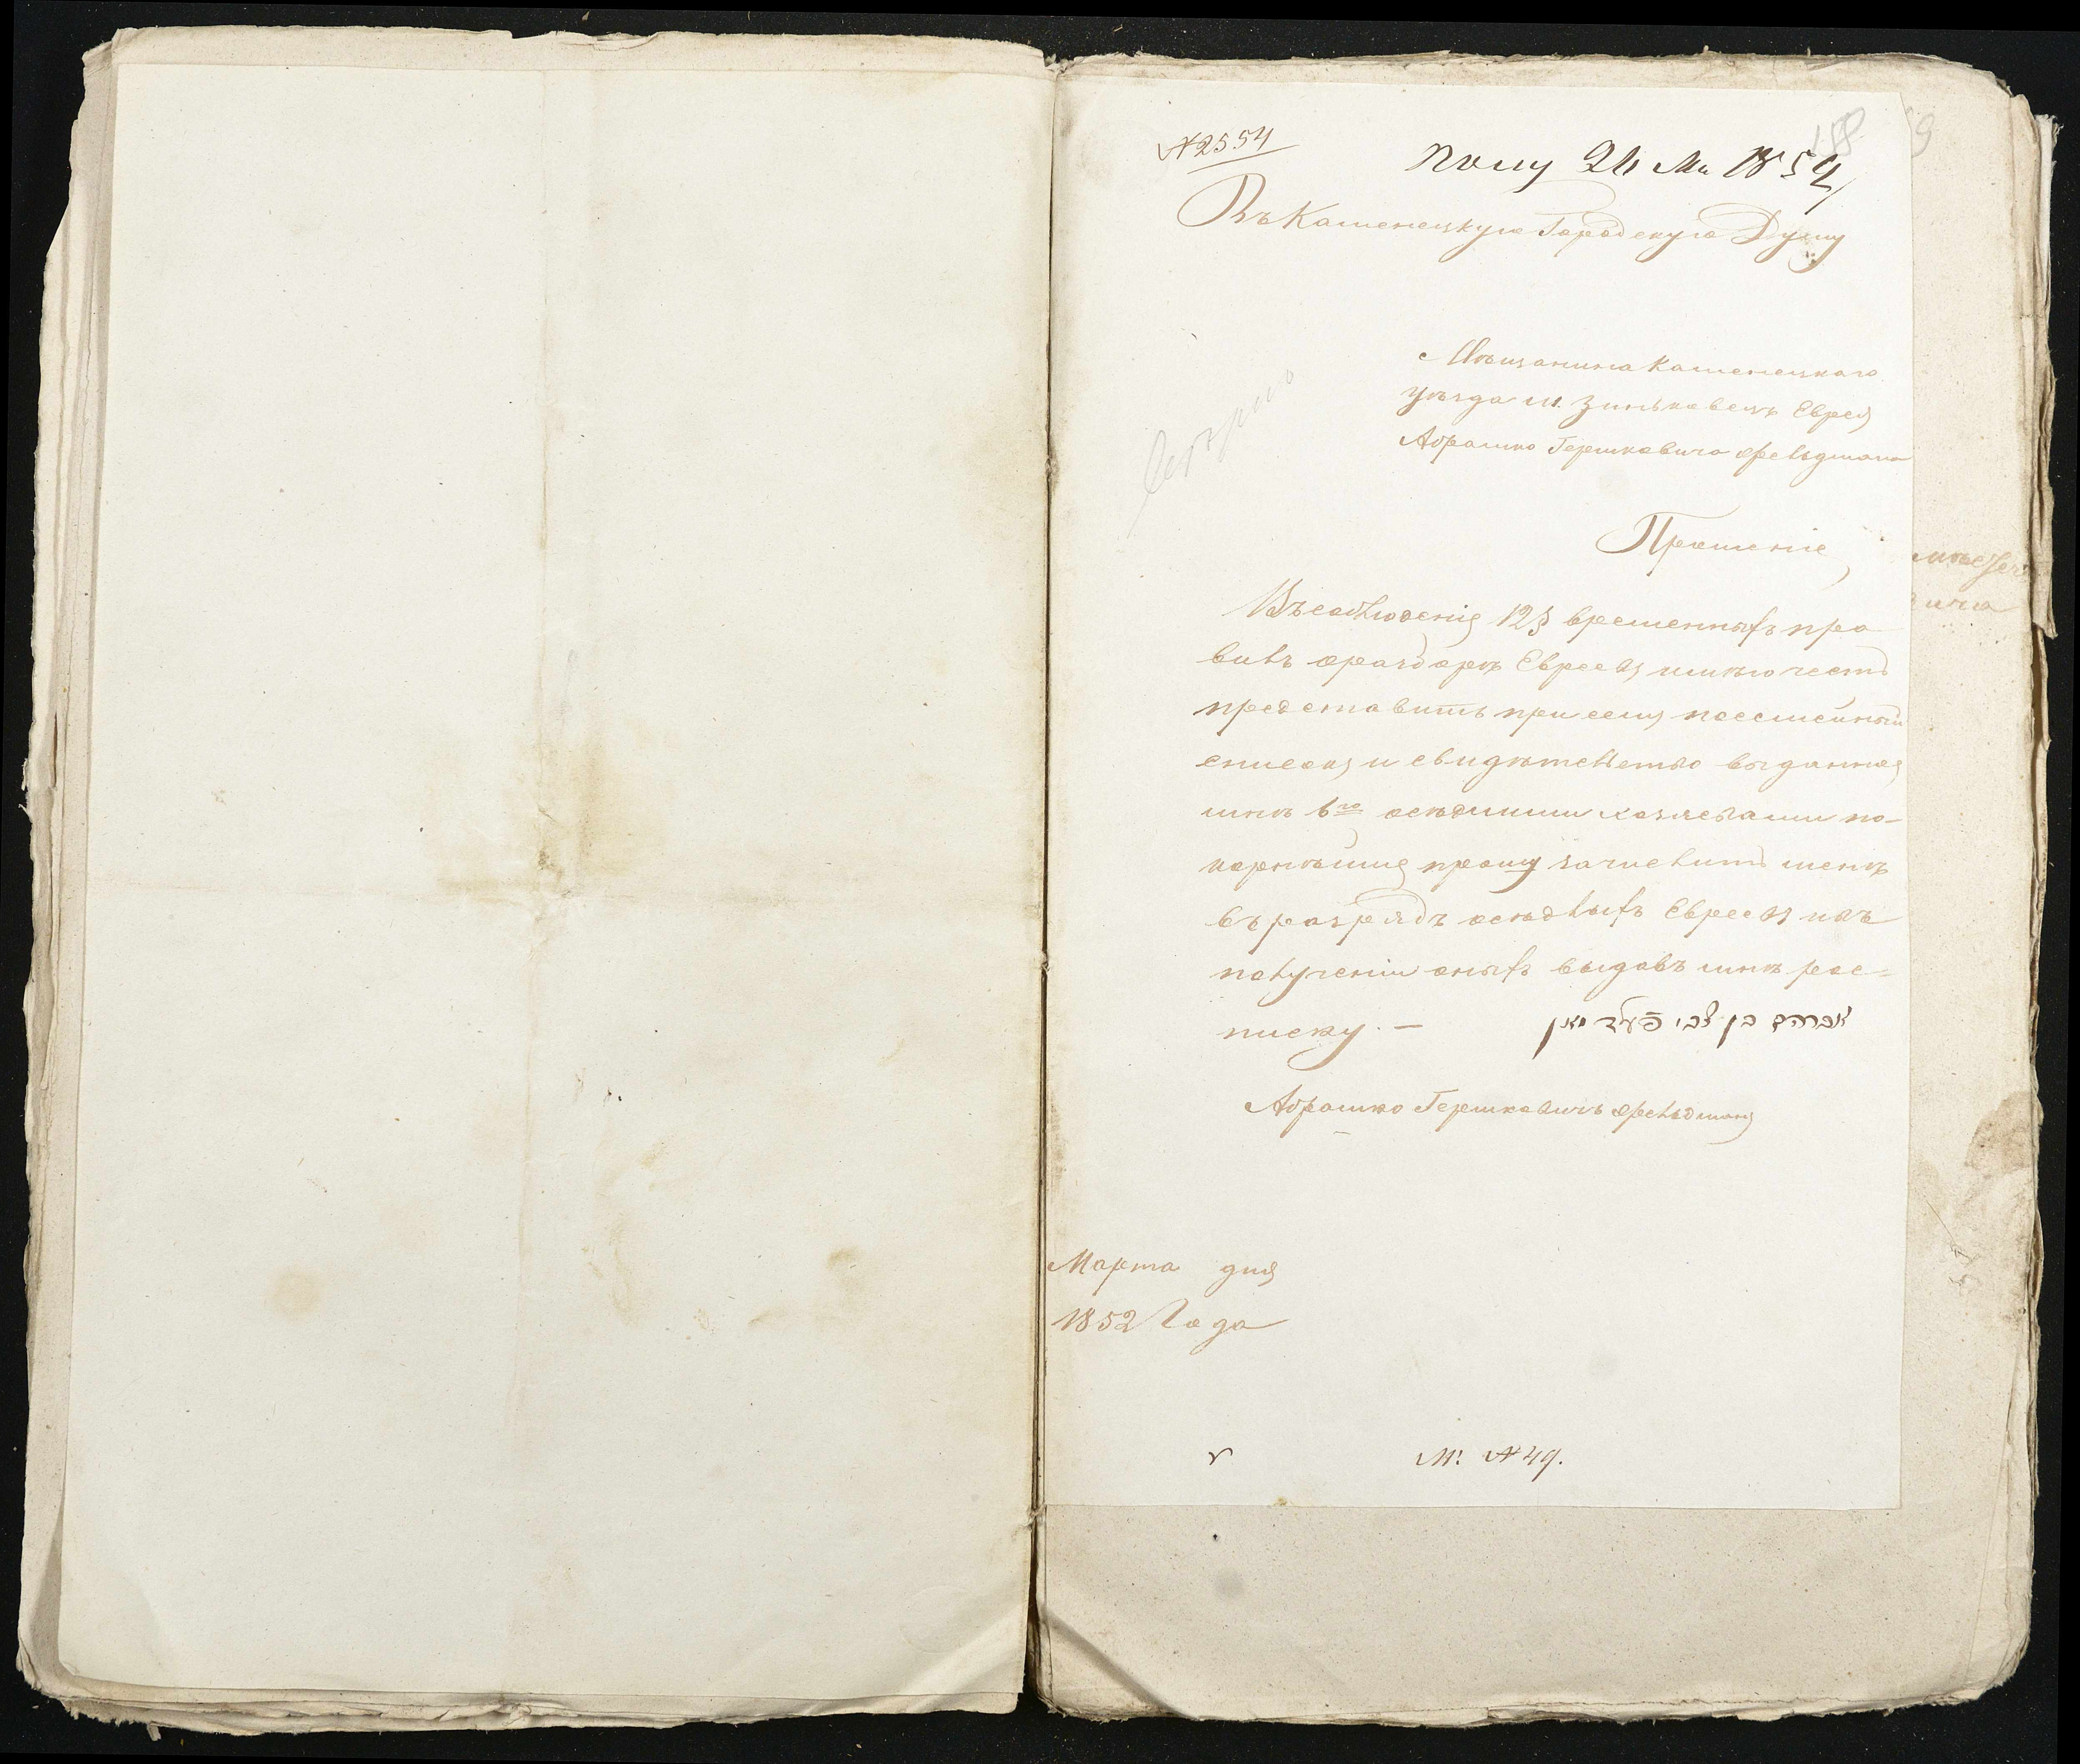 № 2554
158
Полу 24 Ма 1852
Въ Каменецкую Городскую Думу
Мѣщанина Каменецкаго
уѣзда м. Зиньковецъ Еврея
Абрашко Гершковича Фельдмана
Прошеніе
Въ соблюденіе 12§ временныхъ пра
вилъ о разборѣ Евреевъ имѣю честь
представить при семъ посемейный
списокъ и свидѣтельство выданное
мнѣ 6го осѣдлыми хозяевами по-
корнѣйше прошу зачислить менѣ
въ разрядъ осѣдлыхъ Евреевъ и въ
полученіи оныхъ выдавъ мнѣ рос=
писку. — אברהם בן צבי פעלדמאן
Абрашко Гершковичъ Фельдманъ
Марта дня
1852 Года
М. № 49.